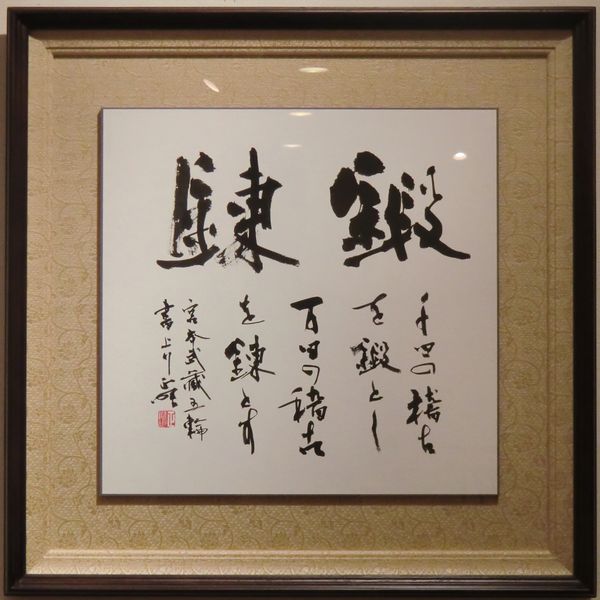 鍛錬
千日の稽古
を鍛とし
万日の稽古
を錬とす
宮本武蔵五輪
書